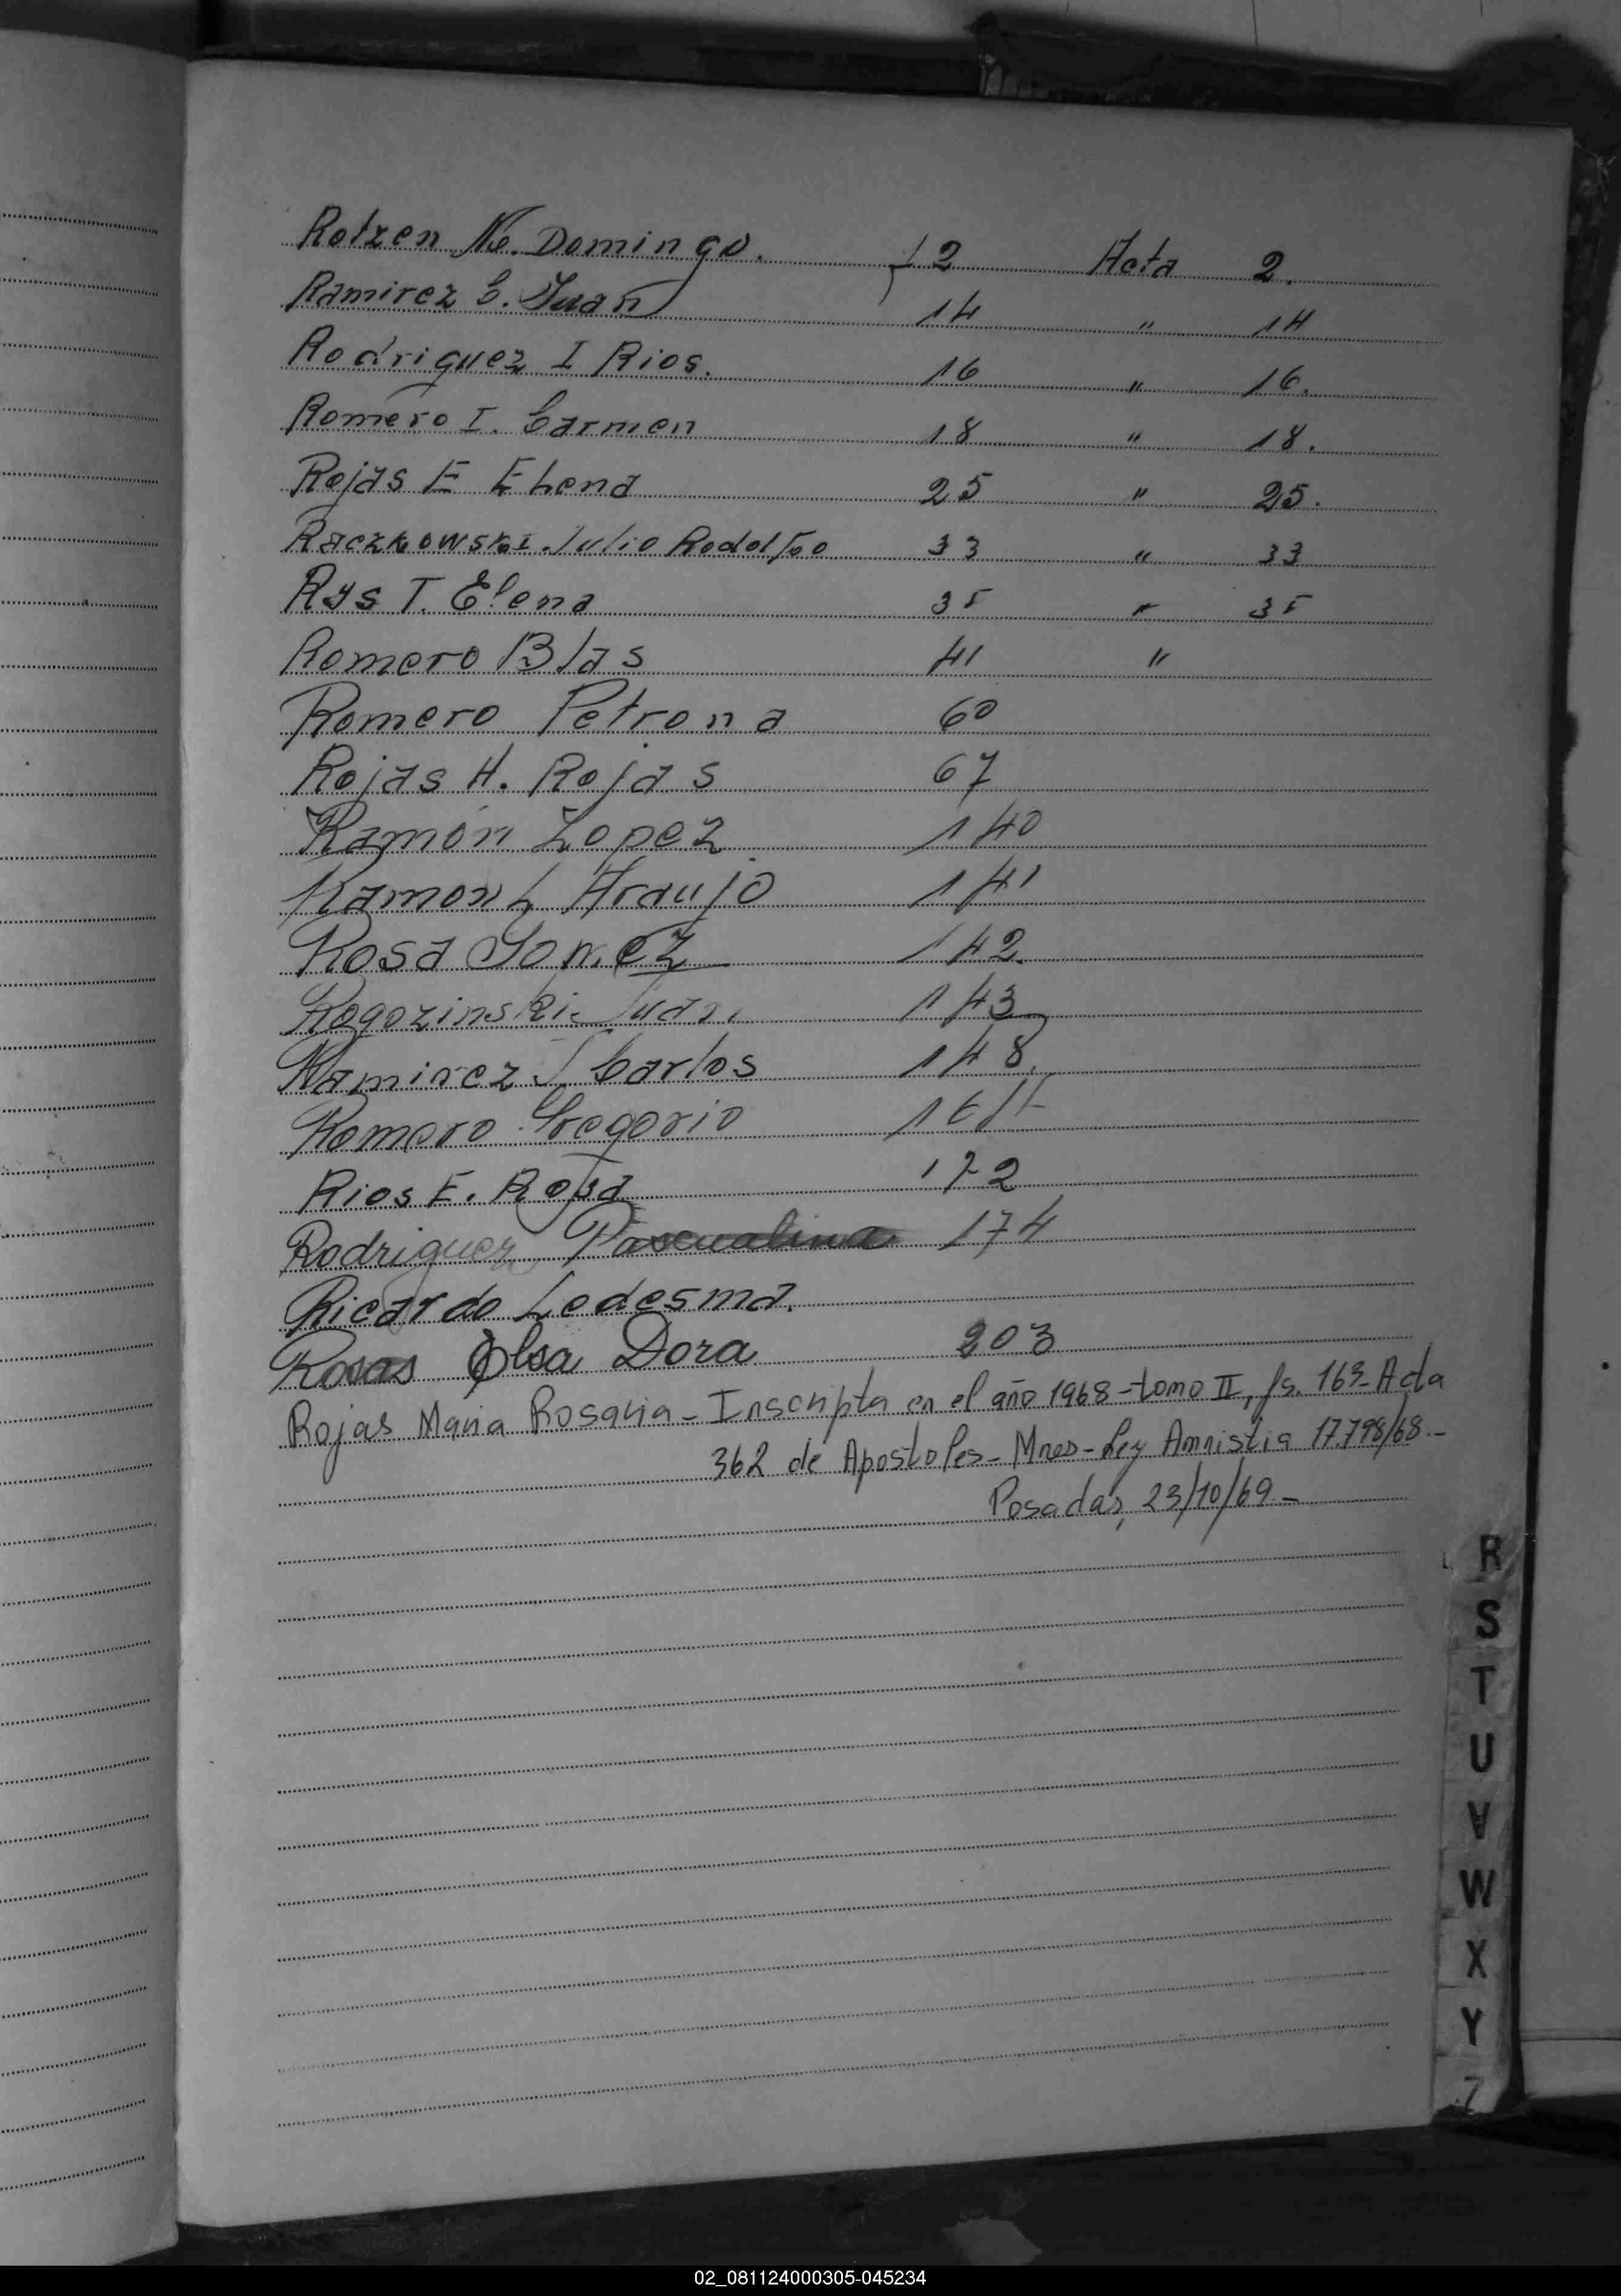 Rotzen No. Domingo. f 2 Acta 2.
Ramirez C. Juan 14 " 14
Rodriguez I Rios. 16 " 16.
Romero I. Carmen 18 " 18.
Rojas E Elena 25 " 25.
Raczkowski Julio Rodolfo 33 " 33
Rys T. Elena 35 " 35
Romero Blas 41 "
Romero Petrona 60
Rojas H. Rojas 67
Ramón Lopez 140
Ramon L Araujo 141
Rosa Gomez 142.
Rogozinski Juan 143
Ramirez J Carlos 148.
Romero Gregorio
Rios E. Rosa 172
Rodriguez Pascualina 174
Ricardo Ledesma.
Rosas Elsa Dora 203
Rojas Maria Rosaria - Inscripta en el año 1968 - tomo II, fs. 163 - Acta
362 de Apostoles - Mnes - Ley Amnistia 17.798/68.-
Posadas, 23/10/69.-
R
S
T
U
V
W
X
Y
Z
02_081124000305-045234